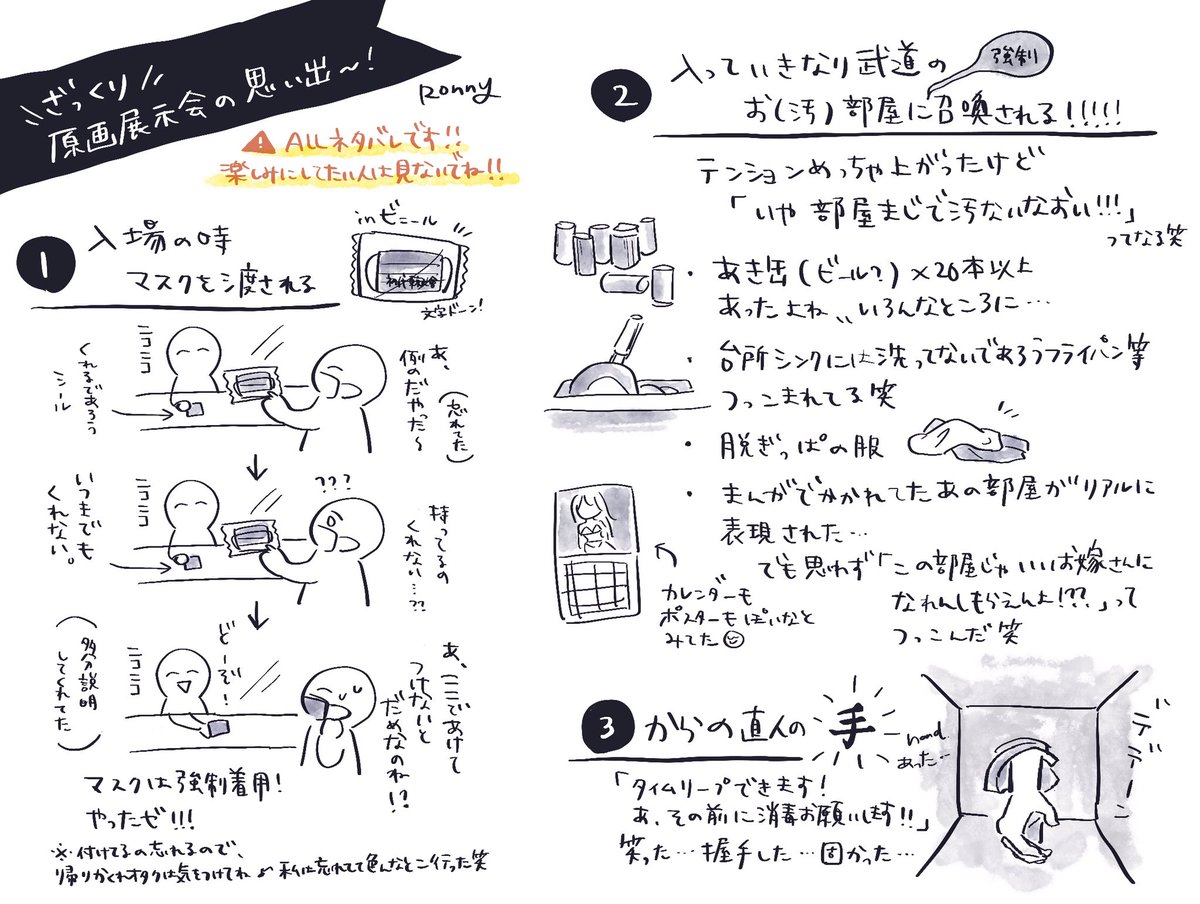 ざっくり
原画展示会の思い出〜!
Ronny
⚠ ALLネタバレです!!
楽しみにしてたい人は見ないでね!!
1 入場の時
マスクを渡される
in ビニール
文字ドーン!
ニコニコ
くれるであろう
シール
あ、
例のだやった〜
(忘れてた)
ニコニコ
いつまでも
くれない。
???
持ってるの
くれない…??
ニコニコ
(多分説明
してくれてた)
どーぞ!
あ、ここであけて
つけないと
だめなのね!?
マスクは強制着用!
やったぜ!!!
※付けてるの忘れるので、
帰りかくれオタクは気をつけてね 私は忘れて色んなとこ行った笑
2 入っていきなり武道の
強制
お(汚)部屋に召喚される!!!!!
テンションめっちゃ上がったけど
「いや 部屋まじで汚ないなおい!!!」
ってなる笑
・あき缶(ビール?)×20本以上
あったよね〟いろんなところに…
・台所シンクには洗ってないであろうフライパン等
つっこまれてる笑
・脱ぎっぱの服
・まんがでかかれてたあの部屋がリアルに
表現された…
でも思わず「この部屋じゃいいお嫁さんに
なれんしもらえんよ!??」って
つっこんだ笑
カレンダーも
ポスターもぽいなと
みてた
3 からの直人の手
hand
あった…
デデーン
「タイムリープできます!
あ、その前に消毒お願いします!!」
笑った…握手した…固かった…